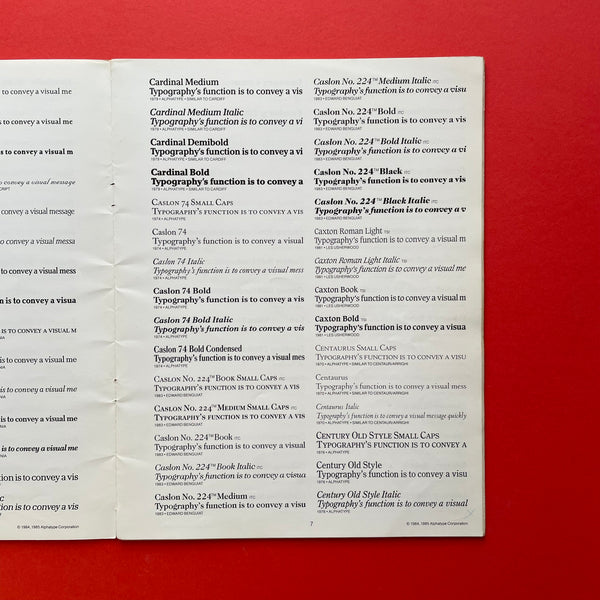 to convey a visual me
to convey a visual me
to convey a visual m
s to convey a visual message
CRIPT
convey a visual message
to convey a visual messa
s to convey a visual mess
n is to convey a visua
IS TO CONVEY A VISUAL M
NIA
to convey a visual me
NIA
to convey a visual me
to convey a visual me
is to convey a visual me
NIA
ion is to convey a vis
ic
ion is to convey a vis
© 1984, 1985 Alphatype Corporation
Cardinal Medium
Typography's function is to convey a vis
1979 • ALPHATYPE • SIMILAR TO CARDIFF
Cardinal Medium Italic
Typography's function is to convey a vi
1979 • ALPHATYPE • SIMILAR TO CARDIFF
Cardinal Demibold
Typography's function is to convey a vi
1979 • ALPHATYPE • SIMILAR TO CARDIFF
Cardinal Bold
Typography's function is to convey a
1979 • ALPHATYPE • SIMILAR TO CARDIFF
CASLON 74 SMALL CAPS
TYPOGRAPHY'S FUNCTION IS TO CONVEY A VIS
1974 • ALPHATYPE
Caslon 74
Typography's function is to convey a visual
1974 • ALPHATYPE
Caslon 74 Italic
Typography's function is to convey a visual mess
1974 • ALPHATYPE
Caslon 74 Bold
Typography's function is to convey a vis
1974 • ALPHATYPE
Caslon 74 Bold Italic
Typography's function is to convey a vis
1974 • ALPHATYPE
Caslon 74 Bold Condensed
Typography's function is to convey a visual mes
1974 • ALPHATYPE
CASLON NO. 224™ BOOK SMALL CAPS ITC
TYPOGRAPHY'S FUNCTION IS TO CONVEY A VIS
1983 • EDWARD BENGUIAT
CASLON NO. 224™ MEDIUM SMALL CAPS ITC
TYPOGRAPHY'S FUNCTION IS TO CONVEY A VIS
1983 • EDWARD BENGUIAT
Caslon No. 224™ Book ITC
Typography's function is to convey a visual
1983 • EDWARD BENGUIAT
Caslon No. 224™ Book Italic ITC
Typography's function is to convey a visua
1983 • EDWARD BENGUIAT
Caslon No. 224™ Medium ITC
Typography's function is to convey a visual
1983 • EDWARD BENGUIAT
Caslon No. 224™ Medium Italic ITC
Typography's function is to convey a visu
1983 • EDWARD BENGUIAT
Caslon No. 224™ Bold ITC
Typography's function is to convey a vis
1983 • EDWARD BENGUIAT
Caslon No. 224™ Bold Italic ITC
Typography's function is to convey a vi
1983 • EDWARD BENGUIAT
Caslon No. 224™ Black ITC
Typography's function is to convey a vis
1983 • EDWARD BENGUIAT
Caslon No. 224™ Black Italic ITC
Typography's function is to convey a v
1983 • EDWARD BENGUIAT
Caxton Roman Light TSI
Typography's function is to convey a visual m
1981 • LES USHERWOOD
Caxton Roman Light Italic TSI
Typography's function is to convey a visual me
1981 • LES USHERWOOD
Caxton Book TSI
Typography's function is to convey a visual m
1981 • LES USHERWOOD
Caxton Bold TSI
Typography's function is to convey a visua
1981 • LES USHERWOOD
CENTAURUS SMALL CAPS
TYPOGRAPHY'S FUNCTION IS TO CONVEY A VISU
1970 • ALPHATYPE • SIMILAR TO CENTAUR/ARRIGHI
Centaurus
Typography's function is to convey a visual mess
1970 • ALPHATYPE • SIMILAR TO CENTAUR/ARRIGHI
Centaurus Italic
Typography's function is to convey a visual message quickly
1970 • ALPHATYPE • SIMILAR TO CENTAUR/ARRIGHI
CENTURY OLD STYLE SMALL CAPS
TYPOGRAPHY'S FUNCTION IS TO CONVEY A
1976 • ALPHATYPE
Century Old Style
Typography's function is to convey a visu
1976 • ALPHATYPE
Century Old Style Italic
Typography's function is to convey a visual
1976 • ALPHATYPE
7
© 1984, 1985 Alphatype Corporation